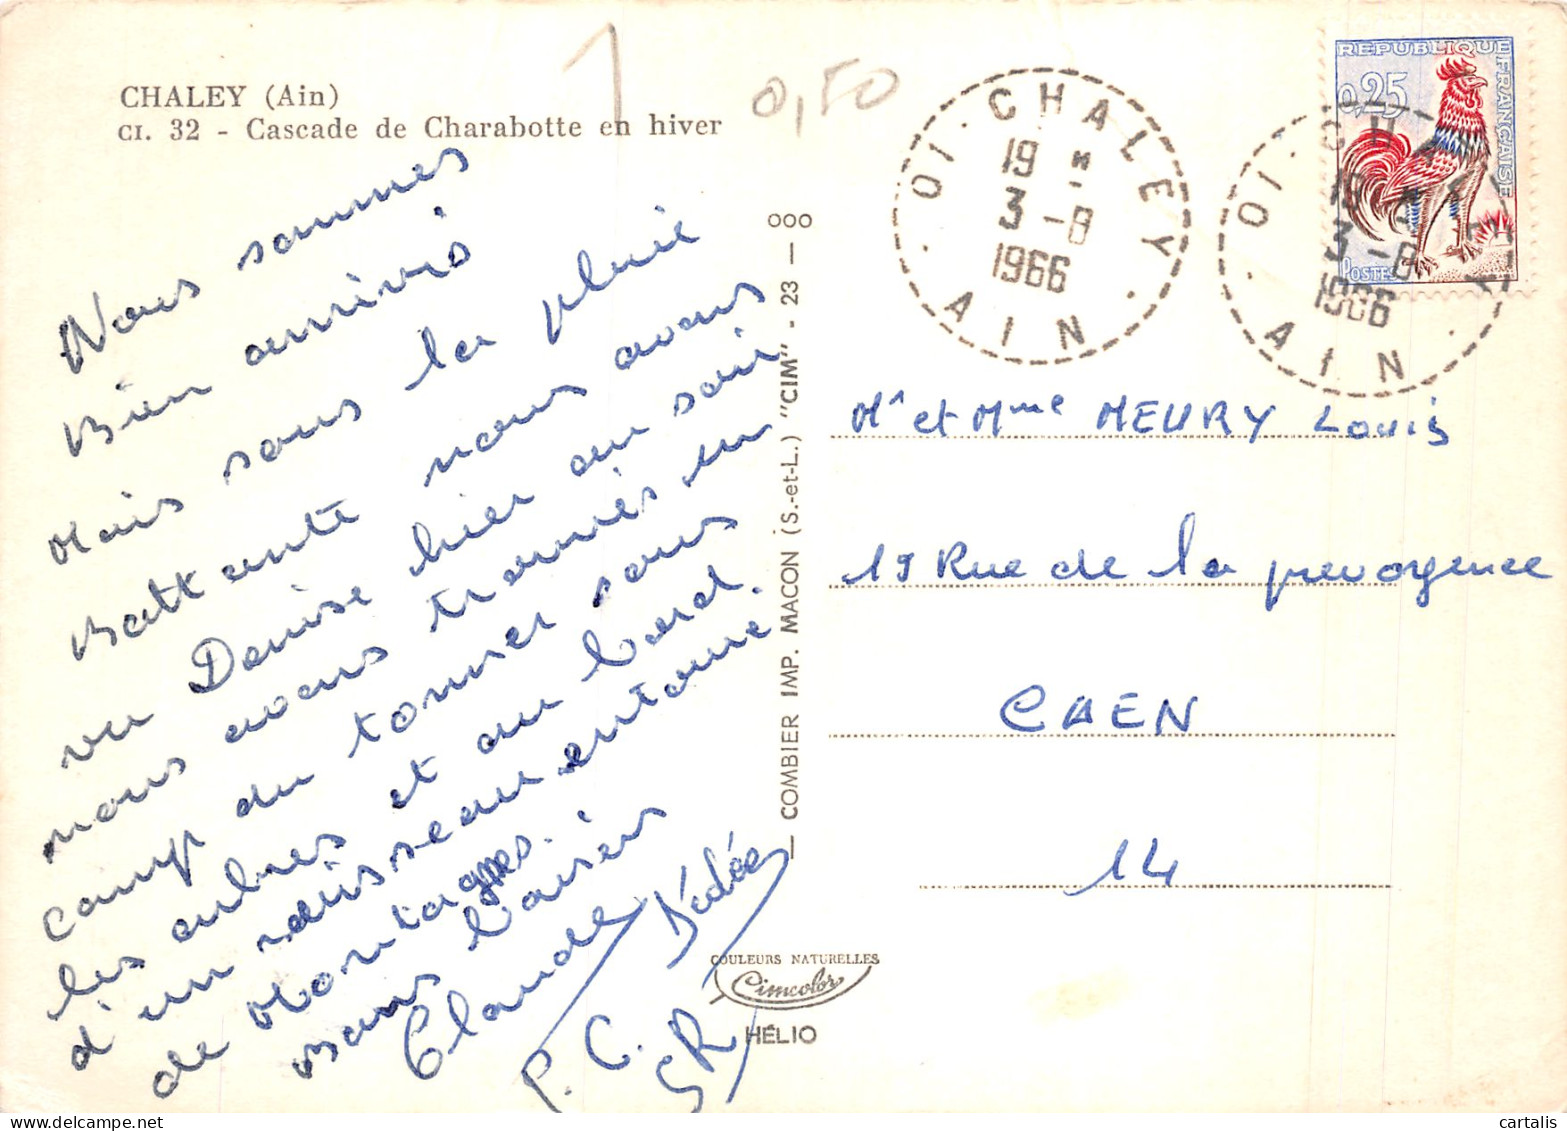 CHALEY (Ain)
CI. 32 - Cascade de Charabotte en hiver
1
0,50
Nous sommes
Bien arrivés
Mais sous la pluie
Battente nous avons
vu Denise hier au soir
nous avons trouvés un
camp du tonner sous
les arbres et au bord.
d'un ruisseau entouré
de Montagnes.
Bons Baisers
Claude Dédée
P. C. SR
COMBIER IMP. MACON (S.-et-L.) "CIM" - 23 — ooo
COULEURS NATURELLES
Cimcolor
HÉLIO
01 · CHALEY ·
19 H
3 -8
1966
AIN
REPUBLIQUE FRANÇAISE
0,25
POSTES
01 · CHALEY ·
19 H
3 -8
1966
AIN
Mr et Mme MEURY Louis
19 Rue de la prevoyence
CAEN
14
cartalis